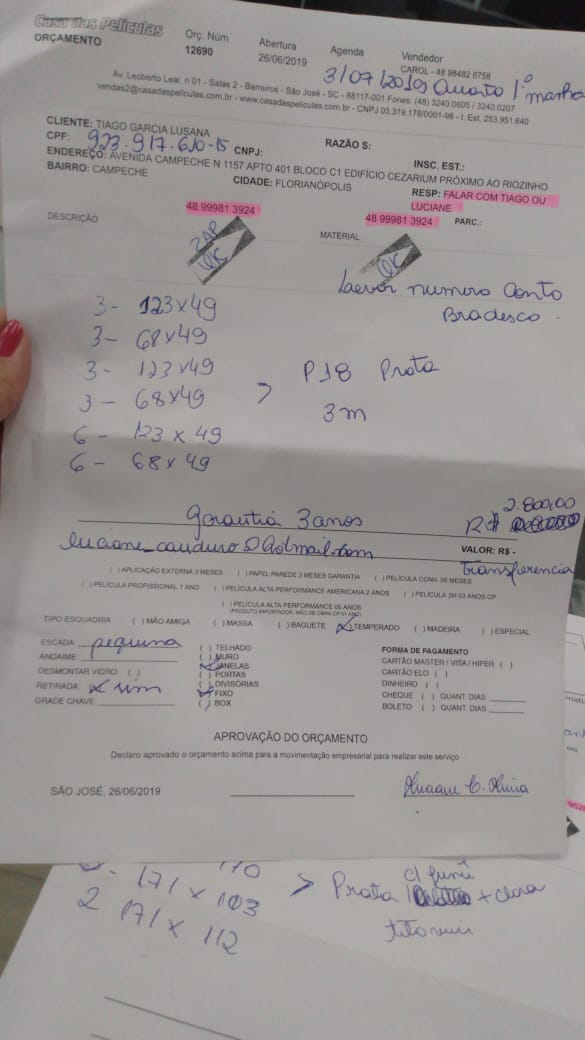 Casa das Películas
ORÇAMENTO
Orç. Núm
12690
Abertura
26/06/2019
Agenda
3/07/2019 Quarta 1º manhã
Vendedor
CAROL - 48 98482 6758
Av. Leoberto Leal, n 01 - Salas 2 - Barreiros - São José - SC - 88117-001 Fones: (48) 3240.0605 / 3240.0207
vendas2@casadaspeliculas.com.br - www.casadaspeliculas.com.br - CNPJ 03.319.178/0001-98 - I. Est. 253.951.640
CLIENTE: TIAGO GARCIA LUSANA
CPF: 923.917.610-15 CNPJ:
RAZÃO S:
INSC. EST.:
ENDEREÇO: AVENIDA CAMPECHE N 1157 APTO 401 BLOCO C1 EDIFÍCIO CEZARIUM PRÓXIMO AO RIOZINHO
BAIRRO: CAMPECHE
CIDADE: FLORIANÓPOLIS
RESP: FALAR COM TIAGO OU
LUCIANE
48 99981 3924
48 99981 3924
PARC.:
DESCRIÇÃO
ZAP
OK
MATERIAL
OK
numero Conto
Bradesco.
3- 123x49
3- 68x49
3- 123x49
3- 68x49
6- 123 x 49
6- 68x49
> P18 Prata
3m
garantia 3 anos
2.800,00
R$
luciane_cauduro@hotmail.com
VALOR: R$ -
transferencia
( ) APLICAÇÃO EXTERNA 3 MESES ( ) PAPEL PAREDE 3 MESES GARANTIA ( ) PELÍCULA CONV. 06 MESES
( ) PELÍCULA PROFISSIONAL 1 ANO ( ) PELÍCULA ALTA PERFORMANCE AMERICANA 2 ANOS ( ) PELÍCULA 3M 03 ANOS CP
( ) PELÍCULA ALTA PERFORMANCE 05 ANOS
(PRODUTO IMPORTADOR, MÃO DE OBRA CP 01 ANO)
TIPO ESQUADRIA ( ) MÃO AMIGA ( ) MASSA ( ) BAGUETE (X) TEMPERADO ( ) MADEIRA ( ) ESPECIAL
ESCADA: pequena
ANDAIME:
DESMONTAR VIDRO: ( )
RETIRADA: x sim
GRADE CHAVE
( ) TELHADO
( ) MURO
(X) JANELAS
( ) PORTAS
( ) DIVISÓRIAS
(X) FIXO
( ) BOX
FORMA DE PAGAMENTO
CARTÃO MASTER / VISA / HIPER ( )
CARTÃO ELO ( )
DINHEIRO ( )
CHEQUE ( ) QUANT DIAS
BOLETO ( ) QUANT DIAS
APROVAÇÃO DO ORÇAMENTO
Declaro aprovado o orçamento acima para a movimentação empresarial para realizar este serviço
SÃO JOSÉ, 26/06/2019
171 x 103
2 171 x 112
> Prata
+ clara